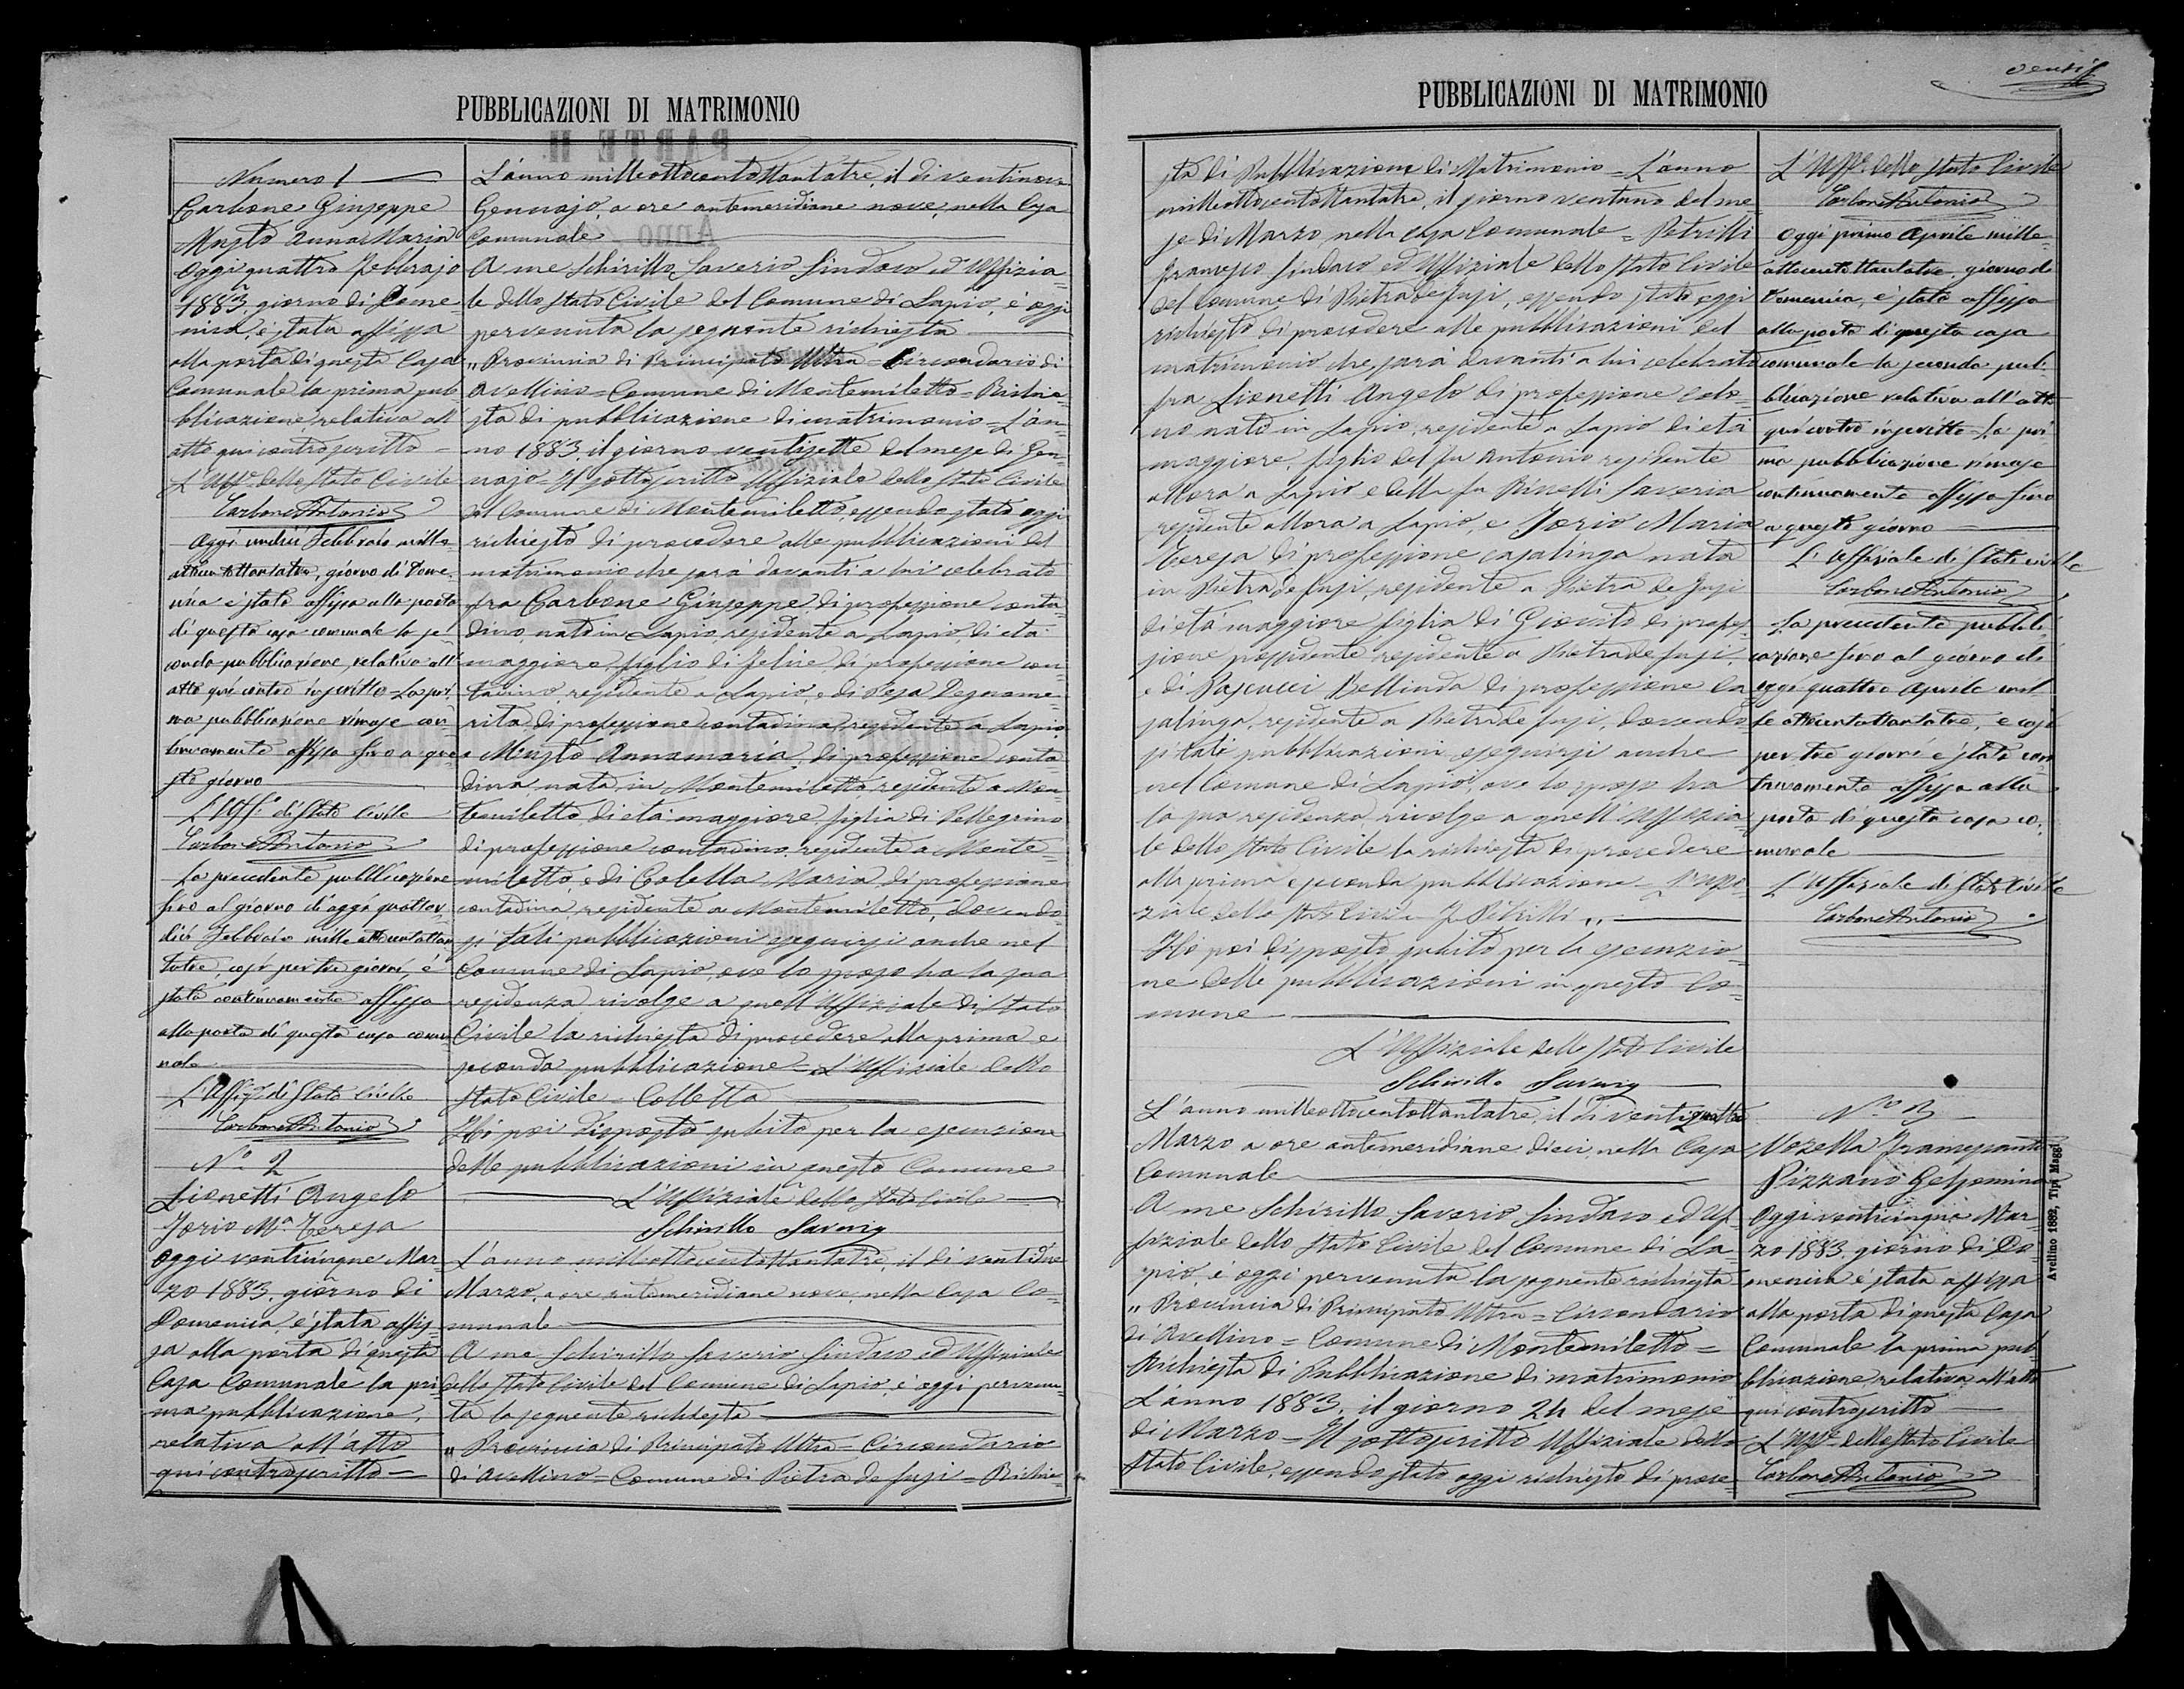 PUBBLICAZIONI DI MATRIMONIO
Numero 1
Carbone Giuseppe
Musto Anna Maria
Oggi quattro Febbrajo
1883, giorno di Dome-
nica, è stata affissa
alla porta di questa Casa
Comunale la prima pub-
blicazione relativa all'
atto qui controscritto =
L'Uff.e dello Stato Civile
Carbone Antonio
Oggi undici Febbraio mille
ottocentottantatre, giorno di Dome-
nica è stata affissa alla porta
di questa casa comunale la se-
conda pubblicazione relativa all'
atto qui contro inscritto - La pri-
ma pubblicazione rimase con-
tinuamente affissa fino a que-
sto giorno
L'Uff.e di Stato Civile
Carbone Antonio
La precedente pubblicazione
fino al giorno di oggi quattor-
dici Febbraio mille ottocentottan
tatre, così per tre giorni, è
stata continuamente affissa
alla porta di questa casa comu-
nale
L'Uffiz.e di Stato Civile
Carbone Antonio
N.o 2
Lionetti Angelo
Jorio M.a Teresa
Oggi venticinque Mar-
zo 1883, giorno di
Domenica, è stata affis-
sa alla porta di questa
Casa Comunale la pri-
ma pubblicazione,
relativa all'atto
qui controscritto =
L'anno milleottocentottantatre, il dì ventinove
Gennajo, a ore antemeridiane nove, nella Casa
Comunale
A me Schirillo Saverio Sindaco ed Uffizia-
le dello Stato Civile del Comune di Lapio, è oggi
pervenuta la seguente richiesta
" Provincia di Principato Ultra = Circondario di
Avellino = Comune di Montemiletto = Richie-
sta di pubblicazione di matrimonio = L'an-
no 1883, il giorno ventisette del mese di Gen-
najo = Il sottoscritto Uffiziale dello Stato Civile
del Comune di Montemiletto, essendo stato oggi
richiesto di procedere alle pubblicazioni del
matrimonio che sarà davanti a lui celebrato
fra Carbone Giuseppe, di professione conta-
dino, nato in Lapio, residente a Lapio, di età
maggiore, figlio di Felice, di professione con-
tadino residente a Lapio, e di
rita, di professione contadina, residente a Lapio,
e Musto Annamaria, di professione conta-
dina, nata in Montemiletto, residente a Mon-
temiletto, di età maggiore, figlia di Pellegrino
di professione contadino, residente a Monte-
miletto, e di Colella Maria, di professione
contadina, residente a Montemiletto, dovendo-
si tali pubblicazioni eseguirsi anche nel
Comune di Lapio, ove lo sposo ha la sua
residenza rivolge a quell'Uffiziale di Stato
Civile la richiesta di procedere alla prima e
seconda pubblicazione = L'Uffiziale dello
Stato Civile = Colletta
Ho poi disposto subito per la esecuzione
delle pubblicazioni in questo Comune
L'Uffiziale dello Stato Civile
Schirillo Saverio
L'anno milleottocentottantatre, il dì ventidue
Marzo, a ore antemeridiane nove, nella Casa Co-
munale
A me Schirillo Saverio Sindaco ed Uffiziale
dello Stato Civile del Comune di Lapio, è oggi pervenu-
ta la seguente richiesta
" Provincia di Principato Ultra = Circondario
di Avellino = Comune di Pietra de fusi = Richie-
PUBBLICAZIONI DI MATRIMONIO
sta di Pubblicazione di Matrimonio = L'anno
milleottocentottantatre, il giorno ventuno del me-
se di Marzo, nella Casa Comunale = Petrilli
Francesco Sindaco ed Uffiziale dello Stato Civile
del Comune di Pietra de fusi, essendo stato oggi
richiesto di procedere alle pubblicazioni del
matrimonio che sarà davanti a lui celebrato
fra Lionetti Angelo di professione colo-
no nato in Lapio, residente a Lapio di età
maggiore, figlio del fu Antonio residente
allora a Lapio e della fu Rinelli Saveria
residente allora a Lapio, e Jorio Maria
Teresa di professione casalinga nata
in Pietra de fusi, residente a Pietra de fusi
di età maggiore figlia di Giocito di profes-
sione possidente residente a Pietra de fusi,
e di Pascucci Bellinda di professione ca
salinga, residente a Pietra de fusi, dovendo-
si tali pubblicazioni eseguirsi anche
nel Comune di Lapio, ove lo sposo ha
la sua residenza rivolge a quell'Uffizia-
le dello Stato Civile la richiesta di procedere
alla prima e seconda pubblicazione = L'Uffi-
ziale dello Stato Civile F. Petrilli "
Ho poi disposto subito per la esecuzio-
ne delle pubblicazioni in questo Co-
mune
L'Uffiziale dello Stato Civile
Schirillo Saverio
L'anno milleottocentottantatre, il dì ventiquattro
Marzo a ore antemeridiane dieci, nella Casa
Comunale
A me Schirillo Saverio Sindaco ed Uf-
fiziale dello Stato Civile del Comune di La-
pio, è oggi pervenuta la seguente richiesta
" Provincia di Principato Ultra = Circondario
di Avellino = Comune di Montemiletto =
Richiesta di Pubblicazione di matrimonio
L'anno 1883, il giorno 24 del mese
di Marzo = Il sottoscritto Uffiziale dello
Stato Civile, essendo stato oggi richiesto di proce-
L'Uff.e dello Stato Civile
Carbone Antonio
Oggi primo Aprile mille-
ottocentottantatre, giorno di
Domenica, è stata affissa
alla porta di questa casa
comunale la seconda pub-
blicazione relativa all'atto
qui contro inscritto - La pri
ma pubblicazione rimase
continuamente affissa fino
a questo giorno
L'Uffiziale di Stato civile
Carbone Antonio
La precedente pubbli-
cazione fino al giorno di
oggi quattro Aprile mil
le ottocentottantatre, e così
per tre giorni è stata con
tinuamente affissa alla
porta di questa casa co-
munale
L'Uffiziale di Stato Civile
Carbone Antonio
N.o 3
Nozella Francesco
Pizzano Gelsomina
Oggi venticinque Mar-
zo 1883, giorno di Do-
menica è stata affissa
alla porta di questa Casa
Comunale la prima pub
blicazione relativa all'atto
qui controscritto
L'Uff.e dello Stato Civile
Carbone Antonio
Avellino 1882, Tipi Maggi